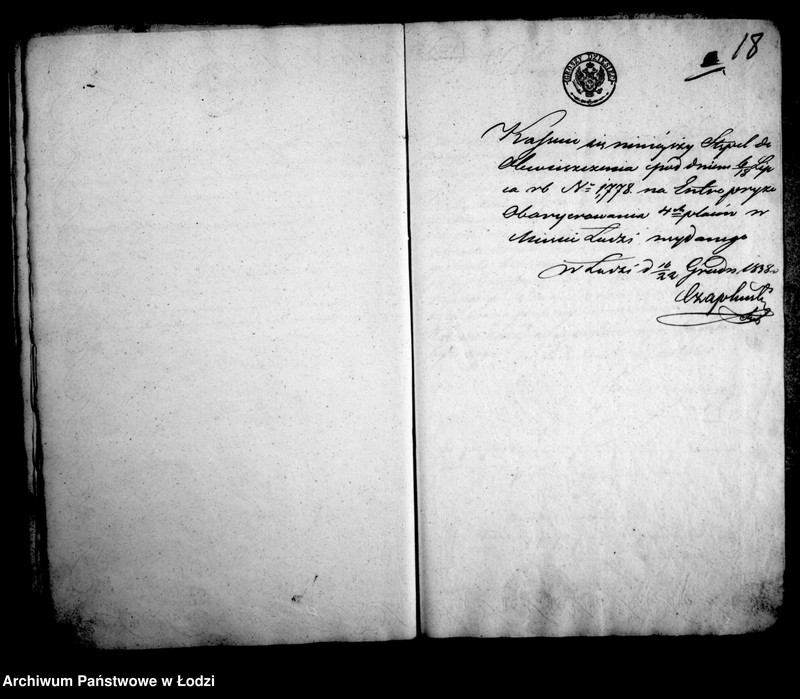 18
GROSZY DZIESIĘĆ
Kassuie się niniejszy Stępel do
Obwieszczenia pod dniem 6/18 Lip
ca rb No 1,778. na Entrepryzę
Obarycrowania 4ch placów w
Mieście Łodzi wydanego
w Łodzi d 10/22 Grudn. 1838 r
Czaplinski
Archiwum Państwowe w Łodzi